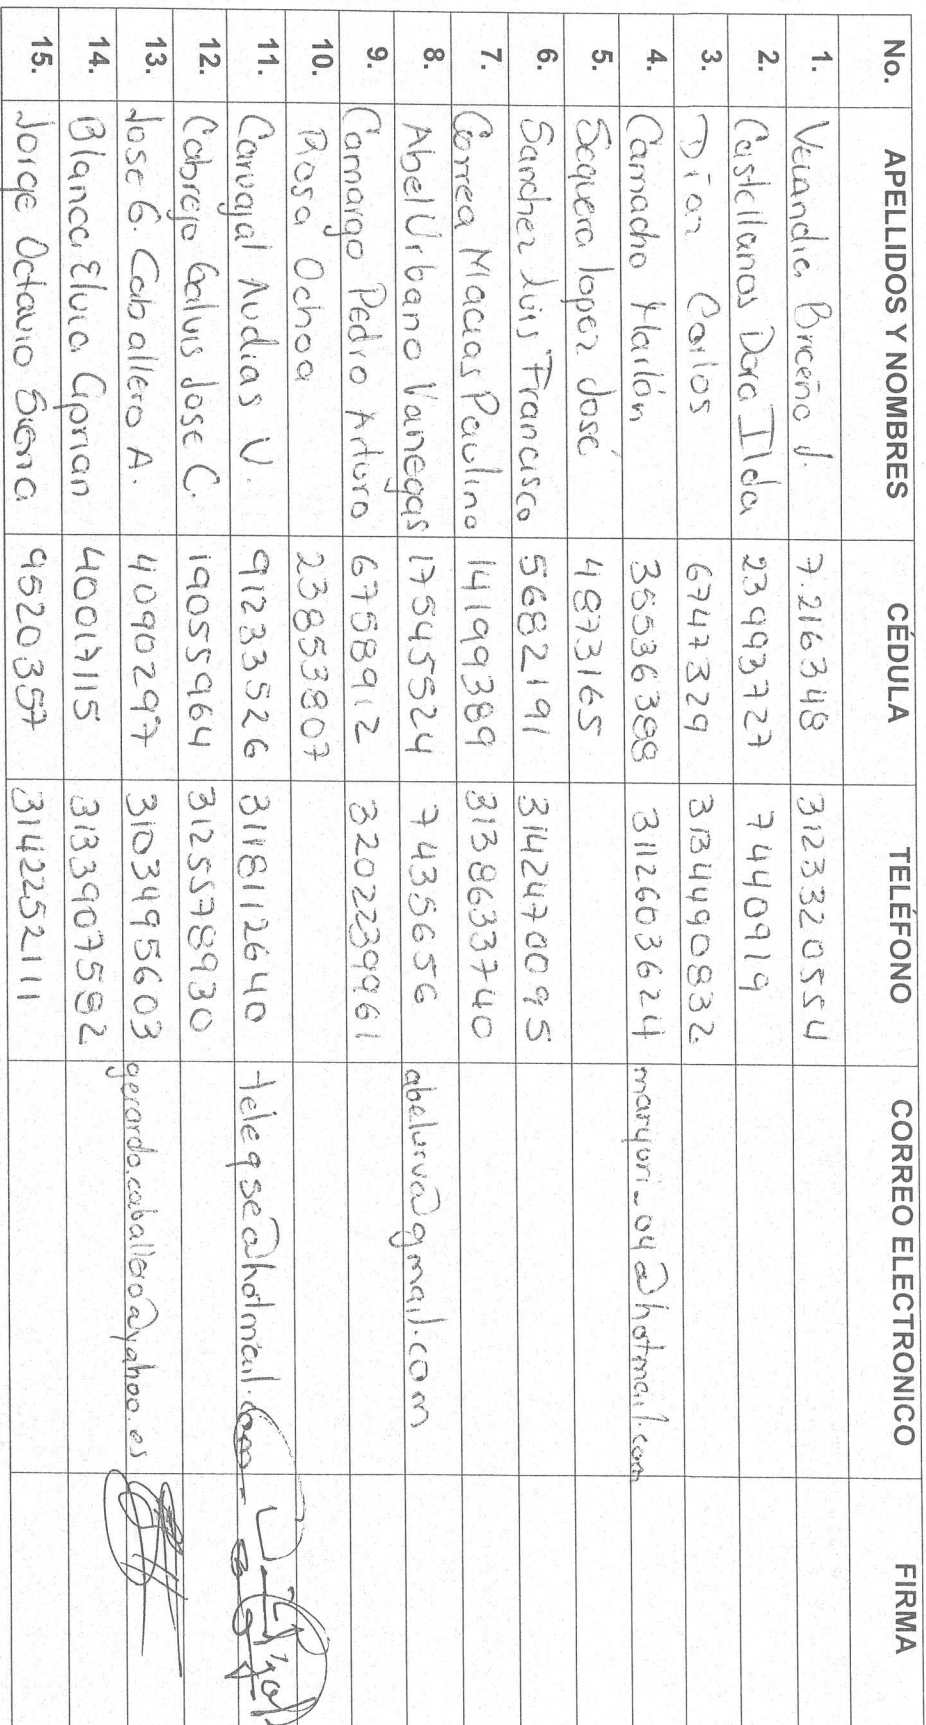 No. APELLIDOS Y NOMBRES CÉDULA TELÉFONO CORREO ELECTRONICO FIRMA
1. Briceño J. 7.216348 3123320554
2. Castellanos Dora Ilda 23993727 7440919
3. Díaz Carlos 6747329 3134490832
4. Camacho Marlón 35536388 3112603624 maryuri_04@hotmail.com
5. Sequera lopez José 4873165
6. Sanchez Luis Francisco 5682191 3142470095
7. Correa Macias Paulino 14199389 3138633740
8. Abel Urbano Vanegas 17545524 7435656 abelurva@gmail.com
9. Camargo Pedro Arturo 6758912 3202239961
10. Rosa Ochoa 23853807
11. Carvajal Audias V. 91233526 3118112640
12. Cabrejo Galvis Jose C. 19055964 3125578930
13. Jose G. Caballero A. 4090297 3103495603 gerardo.caballero@yahoo.es
14. Blanca Elvia Ciprian 40017115 3133907582
15. Jorge Octavio Sierra 9520357 3142252111